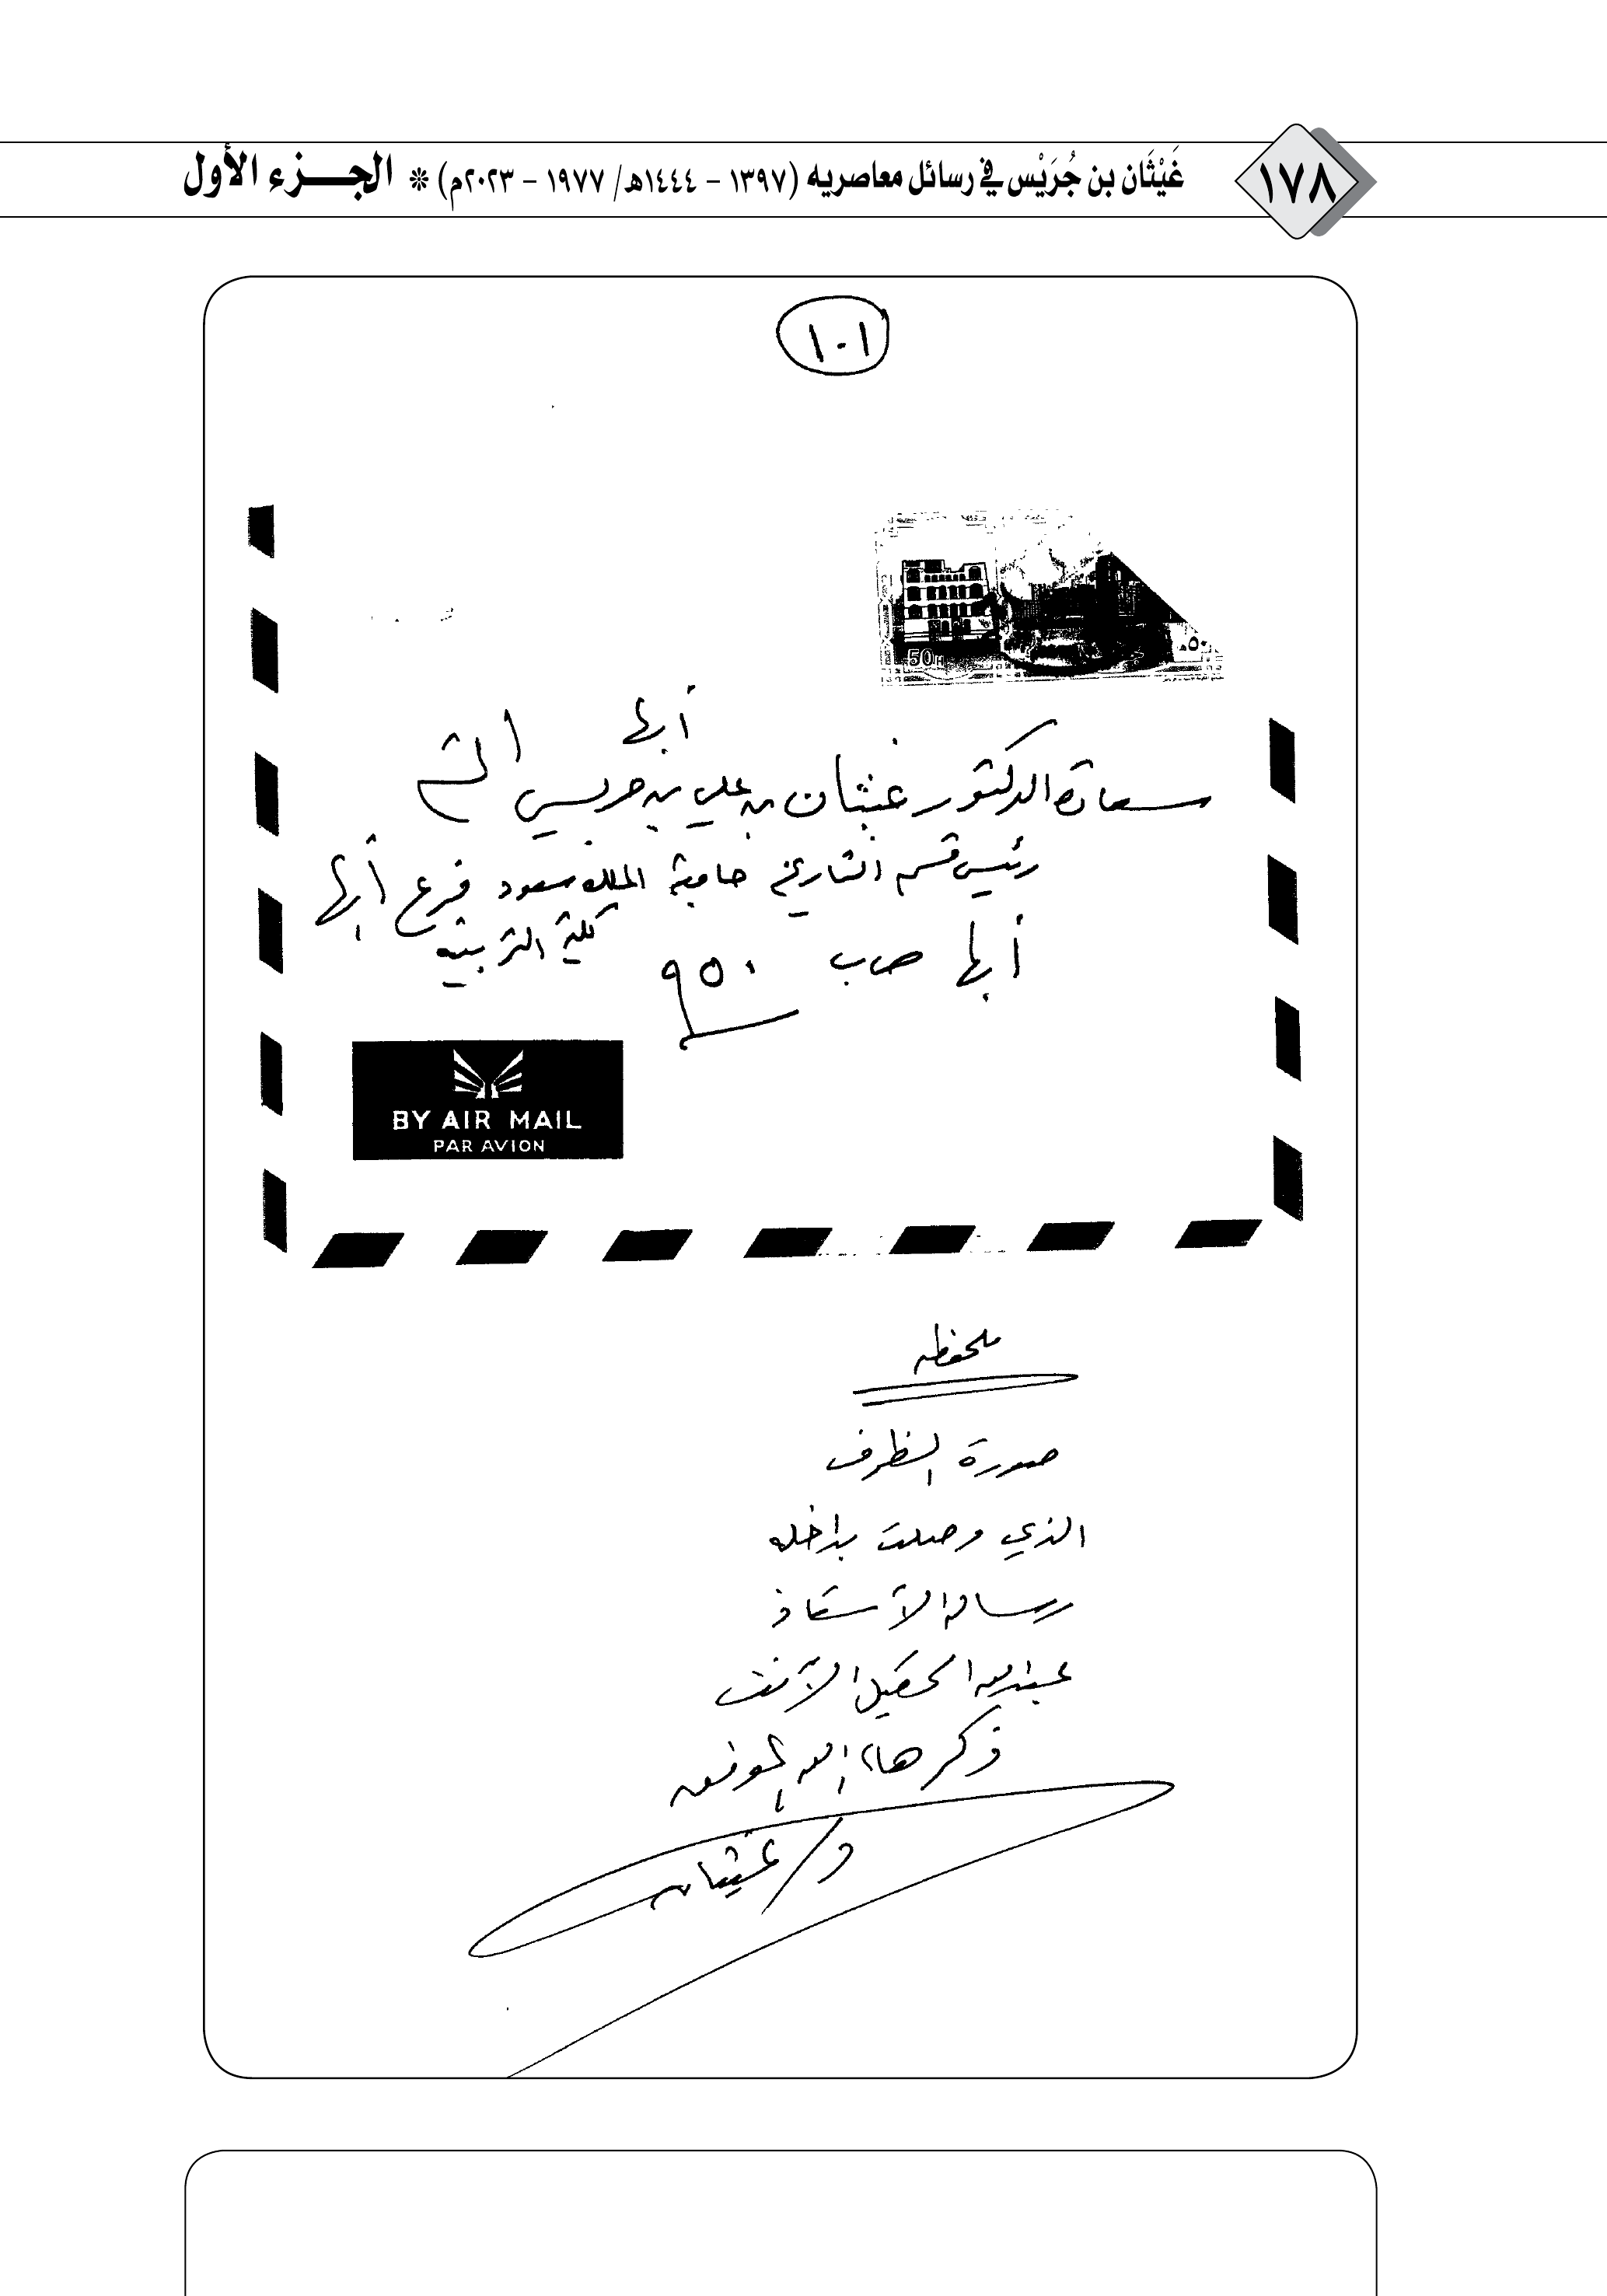 ١٧٨
غَيْثَان بن جُرَيْس في رسائل معاصريه (١٣٩٧ - ١٤٤٤هـ/ ١٩٧٧ - ٢٠٢٣م) * الجزء الأول
١٠١
50H
٥٠هـ
أبها
سعادة الدكتور غيثان بن علي بن جريس
رئيس قسم التاريخ جامعة الملك سعود فرع أبها
كلية التربية
أبها ص ب ٩٥٠
BY AIR MAIL
PAR AVION
ملحوظه
صورة الظرف
الذي وصلت بداخله
رسالة الأستاذ
عبدالله الحقيل الآنف
ذكرها، والله الموفق
د/ غيثان